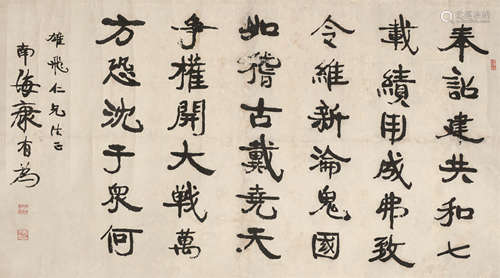 奉詔建共和七
載績用成弗致
令維新淪鬼國
如稽古戴堯天
爭權開大戰萬
方恐沈于眾何
雄飛仁兄法正
南海康有為